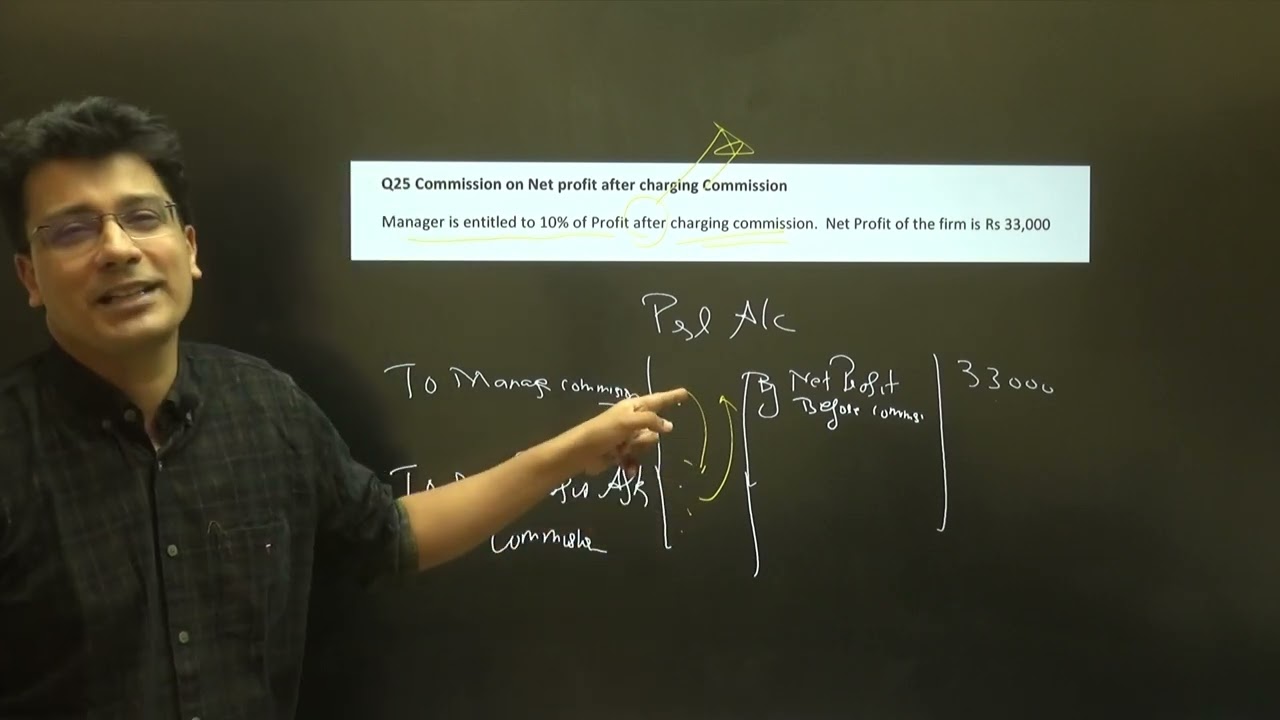 Q25 Commission on Net profit after charging Commission
Manager is entitled to 10% of Profit after charging commission. Net Profit of the firm is Rs 33,000
P&L A/c
To Manage commission
By Net Profit
Before commi.
33000
To
Commission